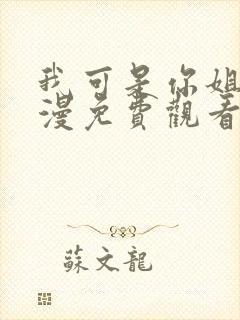 我可是你姐
漫免費觀看
蘇文龍